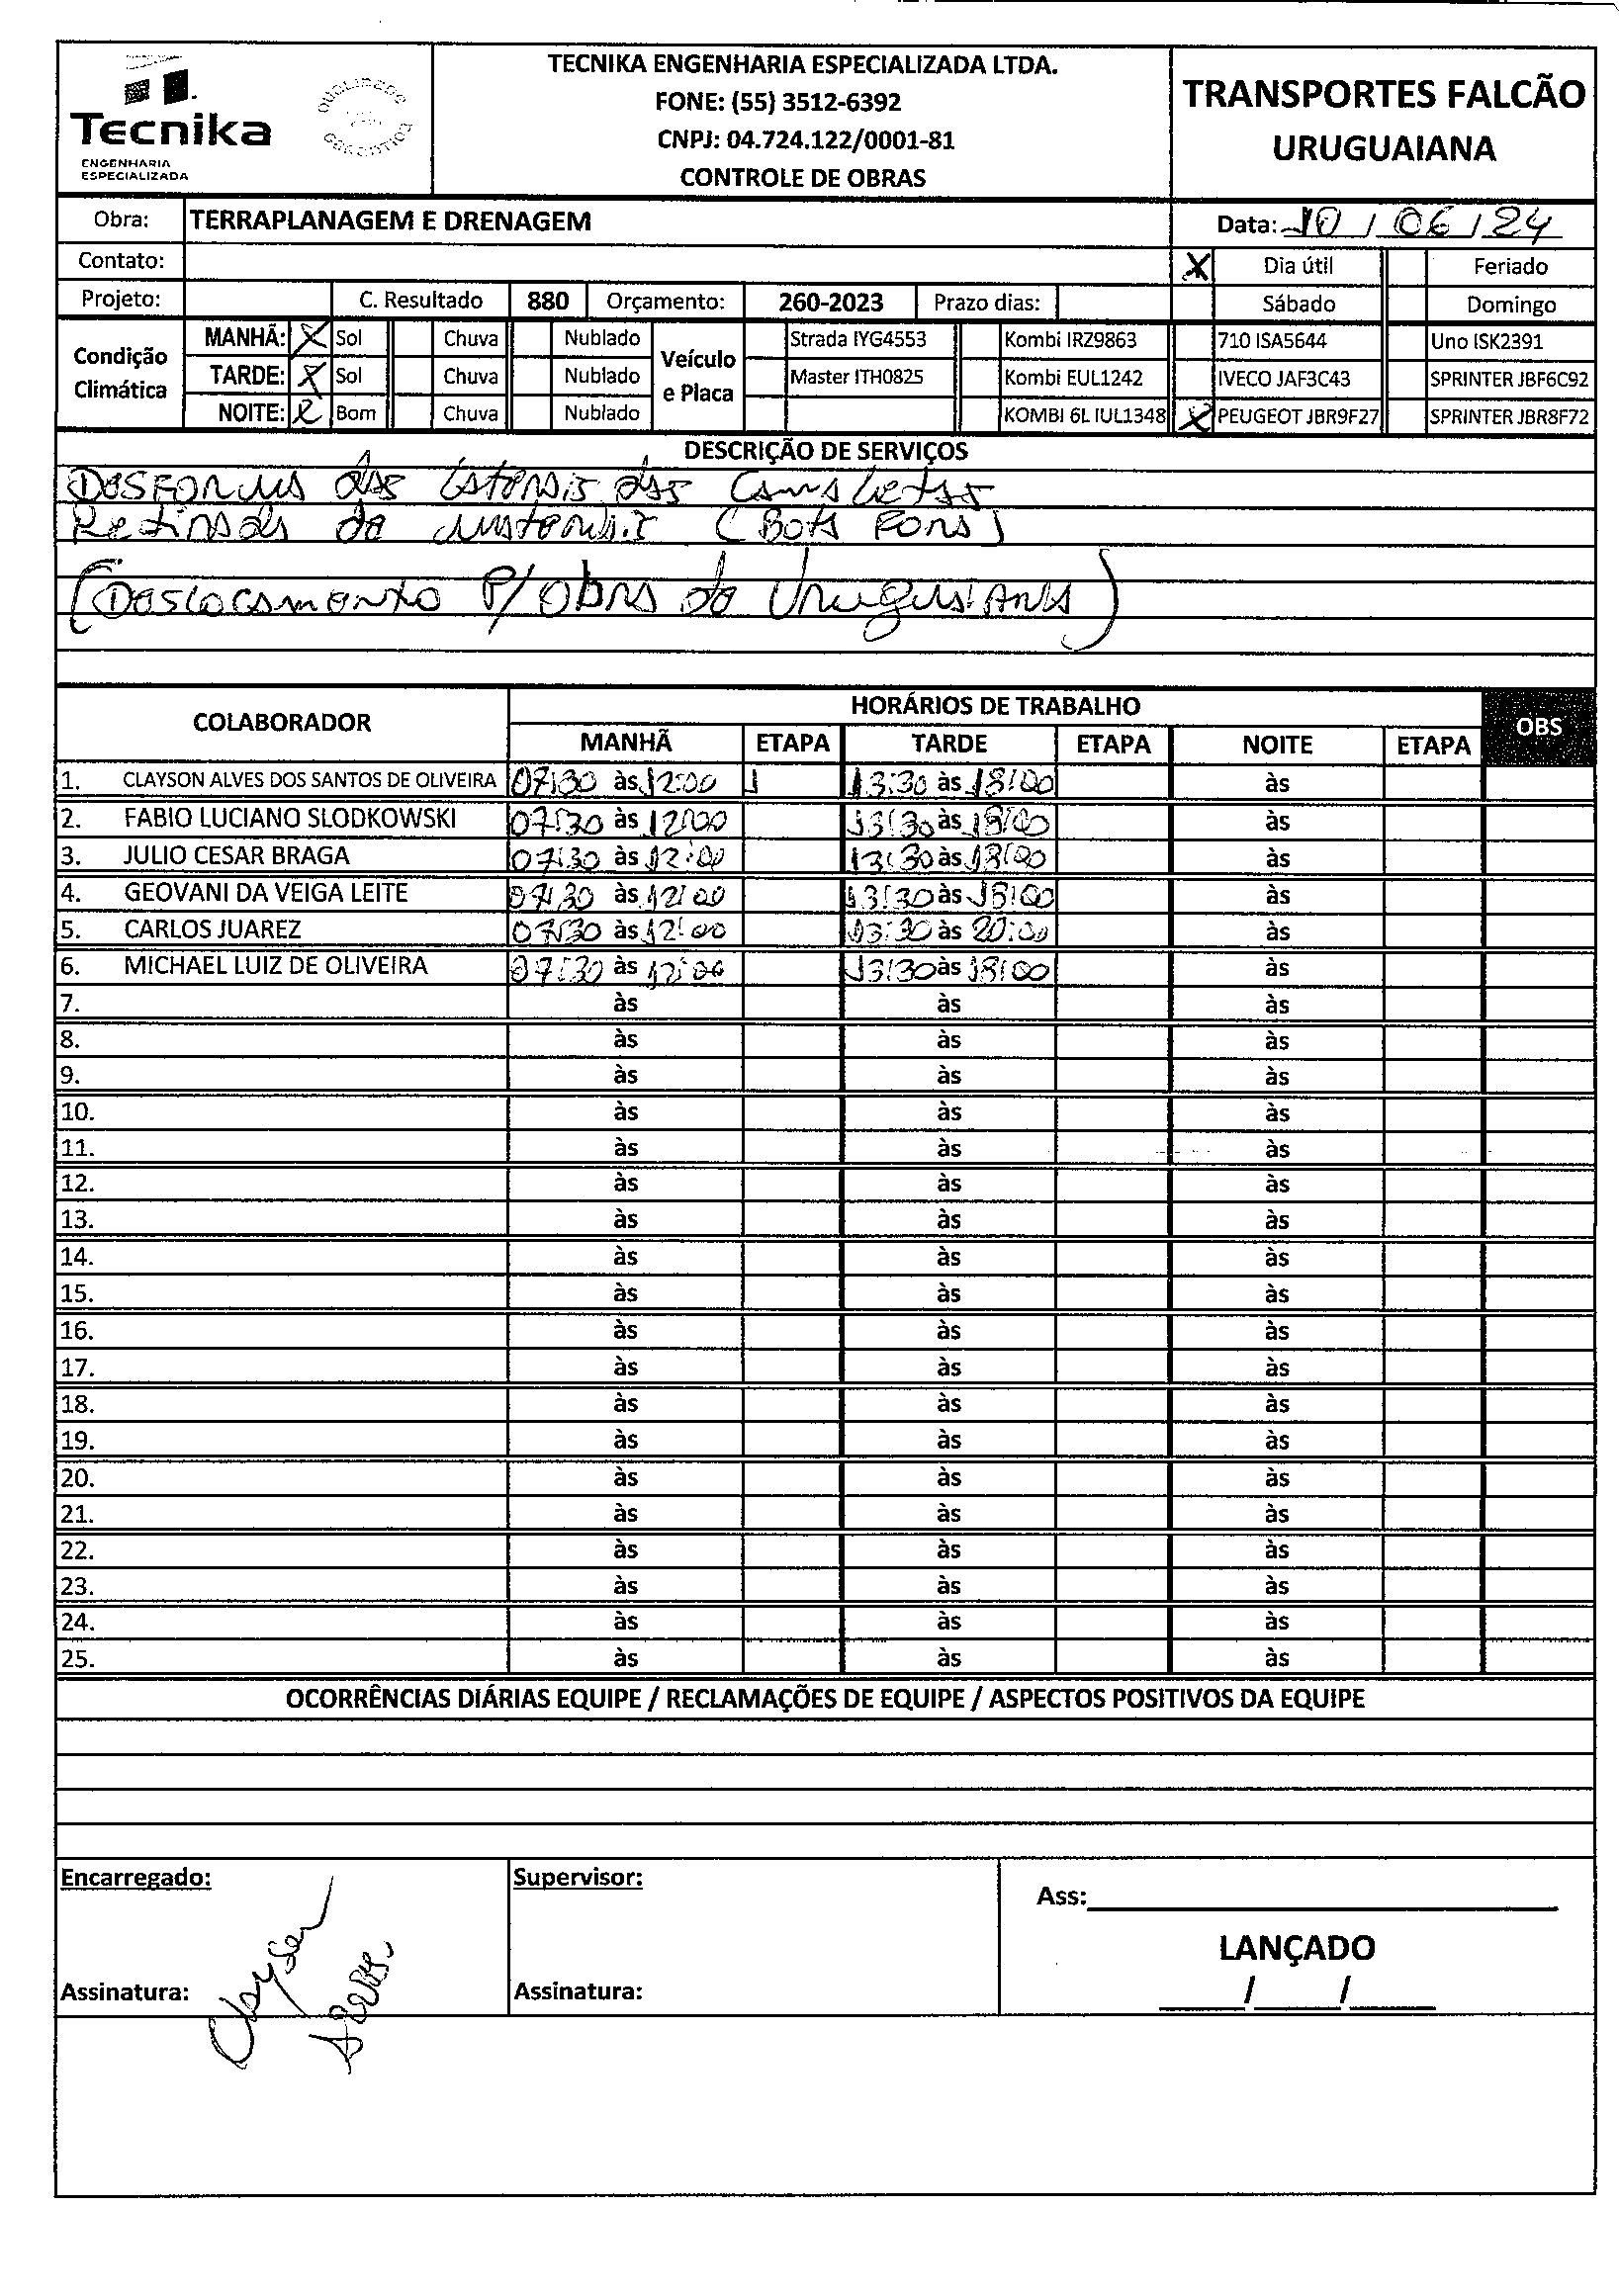 Tecnika
ENGENHARIA
ESPECIALIZADA
TECNIKA ENGENHARIA ESPECIALIZADA LTDA.
FONE: (55) 3512-6392
CNPJ: 04.724.122/0001-81
CONTROLE DE OBRAS
TRANSPORTES FALCÃO
URUGUAIANA
Obra: TERRAPLANAGEM E DRENAGEM Data: 10 / 06 / 24
Contato: X Dia útil Feriado
Projeto: C. Resultado 880 Orçamento: 260-2023 Prazo dias: Sábado Domingo
Condição Climática
MANHÃ: X Sol Chuva Nublado
TARDE: X Sol Chuva Nublado
NOITE: X Bom Chuva Nublado
Veículo e Placa
Strada IYG4553 Kombi IRZ9863 710 ISA5644 Uno ISK2391
Master ITH0825 Kombi EUL1242 IVECO JAF3C43 SPRINTER JBF6C92
KOMBI 6L IUL1348 X PEUGEOT JBR9F27 SPRINTER JBR8F72
DESCRIÇÃO DE SERVIÇOS
das das
Retirada de (Bota Fora)
(Deslocamento P/ Obra de Uruguaiana)
COLABORADOR HORÁRIOS DE TRABALHO OBS
MANHÃ ETAPA TARDE ETAPA NOITE ETAPA
1. CLAYSON ALVES DOS SANTOS DE OLIVEIRA 07:30 às 12:00 13:30 às 18:00 às
2. FABIO LUCIANO SLODKOWSKI 07:30 às 12:00 13:30 às 18:00 às
3. JULIO CESAR BRAGA 07:30 às 12:00 13:30 às 18:00 às
4. GEOVANI DA VEIGA LEITE 07:30 às 12:00 13:30 às 18:00 às
5. CARLOS JUAREZ 07:30 às 12:00 13:30 às 20:00 às
6. MICHAEL LUIZ DE OLIVEIRA 07:30 às 12:00 13:30 às 18:00 às
7. às às às
8. às às às
9. às às às
10. às às às
11. às às às
12. às às às
13. às às às
14. às às às
15. às às às
16. às às às
17. às às às
18. às às às
19. às às às
20. às às às
21. às às às
22. às às às
23. às às às
24. às às às
25. às às às
OCORRÊNCIAS DIÁRIAS EQUIPE / RECLAMAÇÕES DE EQUIPE / ASPECTOS POSITIVOS DA EQUIPE
Encarregado: Supervisor: Ass:
Clayson
LANÇADO
Assinatura: Assinatura: / /